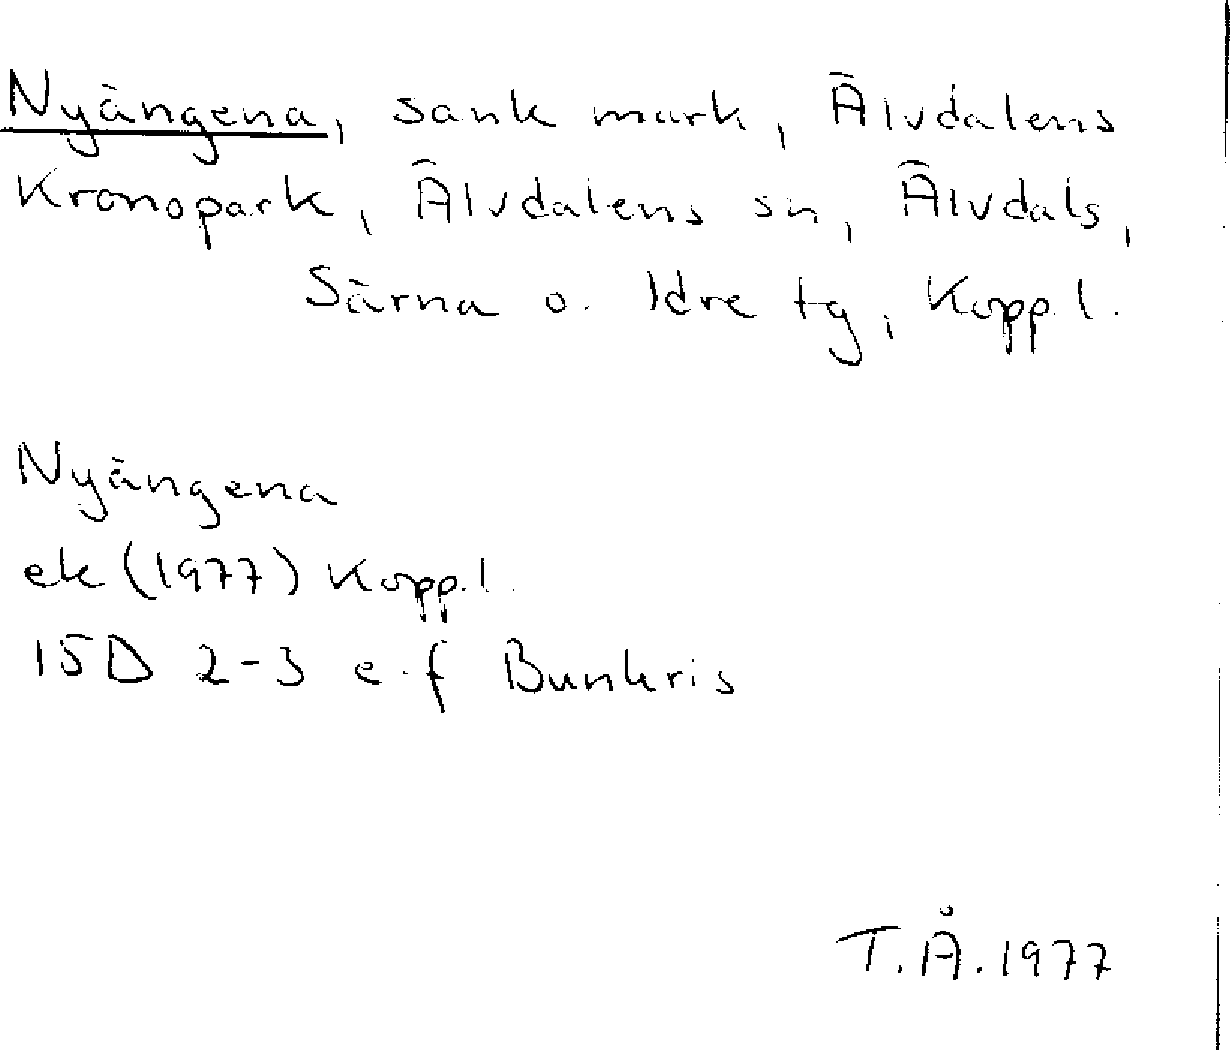 Nyängena, sank mark, Älvdalens
Kronopark, Älvdalens sn, Älvdals,
Särna o. Idre tg, Kopp. l.
Nyängena
ek (1977) Kopp. l.
15D 2-3 e-f Bunkris
T.Å. 1977